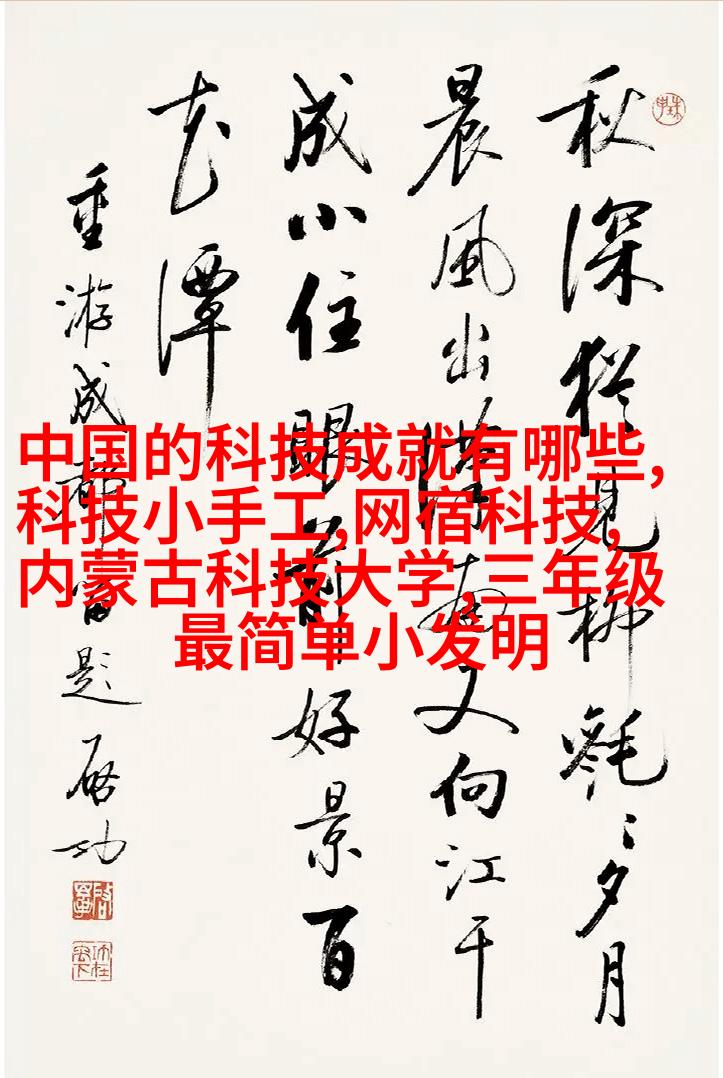 秋深猶見柳毿〻夕月
晨風出南又向江干
成小住眼前好景百
花潭
重游成都留題 啟功
中国的科技成就有哪些,
科技小手工,网宿科技,
内蒙古科技大学,三年级
最简单小发明